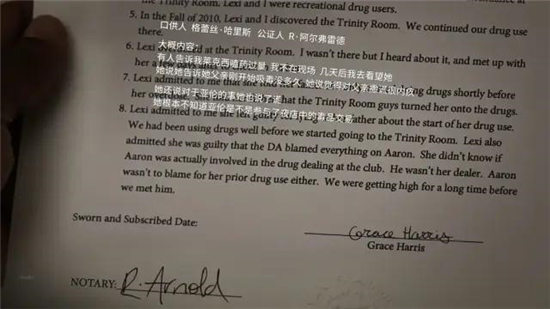 Trinity Room. Lexi and I were recreational drug users.
5. In the Fall of 2010, Lexi and I discovered the Trinity Room. We continued our drug use
there.
口供人 格蕾丝·哈里斯 公证人 R·阿尔弗雷德
大概内容:
6. Lexi at the Trinity Room. I wasn't there but I heard about it, and met up with
有人告诉我莱克西嗑药过量 我不在现场 几天后我去看望她
her a few days drugs shortly before
她说她告诉她父亲刚开始吸毒没多久 她说觉得对父亲撒谎很内疚
7. Lexi admitted to me that
her that the Trinity Room guys turned her onto the drugs.
她还说对于亚伦的事她也说了谎
8. Lexi admitted to me she father about the start of her drug use.
她根本不知道亚伦是不是参与了夜店中的毒品交易
We had been using drugs well before we started going to the Trinity Room. Lexi also
admitted she was guilty that the DA blamed everything on Aaron. She didn't know if
Aaron was actually involved in the drug dealing at the club. He wasn't her dealer. Aaron
wasn't to blame for her prior drug use either. We were getting high for a long time before
we met him.
Sworn and Subscribed Date:
Grace Harris
Grace Harris
NOTARY: R. Arnold